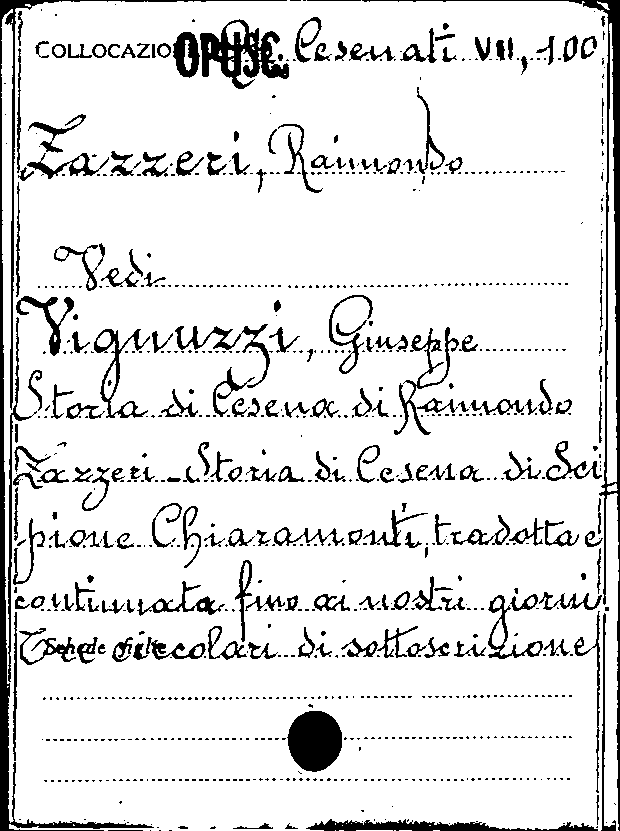 COLLOCAZIO OPUSC. Cesenati VII, 100
Zazzeri, Raimondo
Vedi
Vignuzzi, Giuseppe
Storia di Cesena di Raimondo
Zazzeri - Storia di Cesena di Sci
pione Chiaramonti, tradotta e
continuata fino ai nostri giorni.
Tre circolari di sottoscrizione